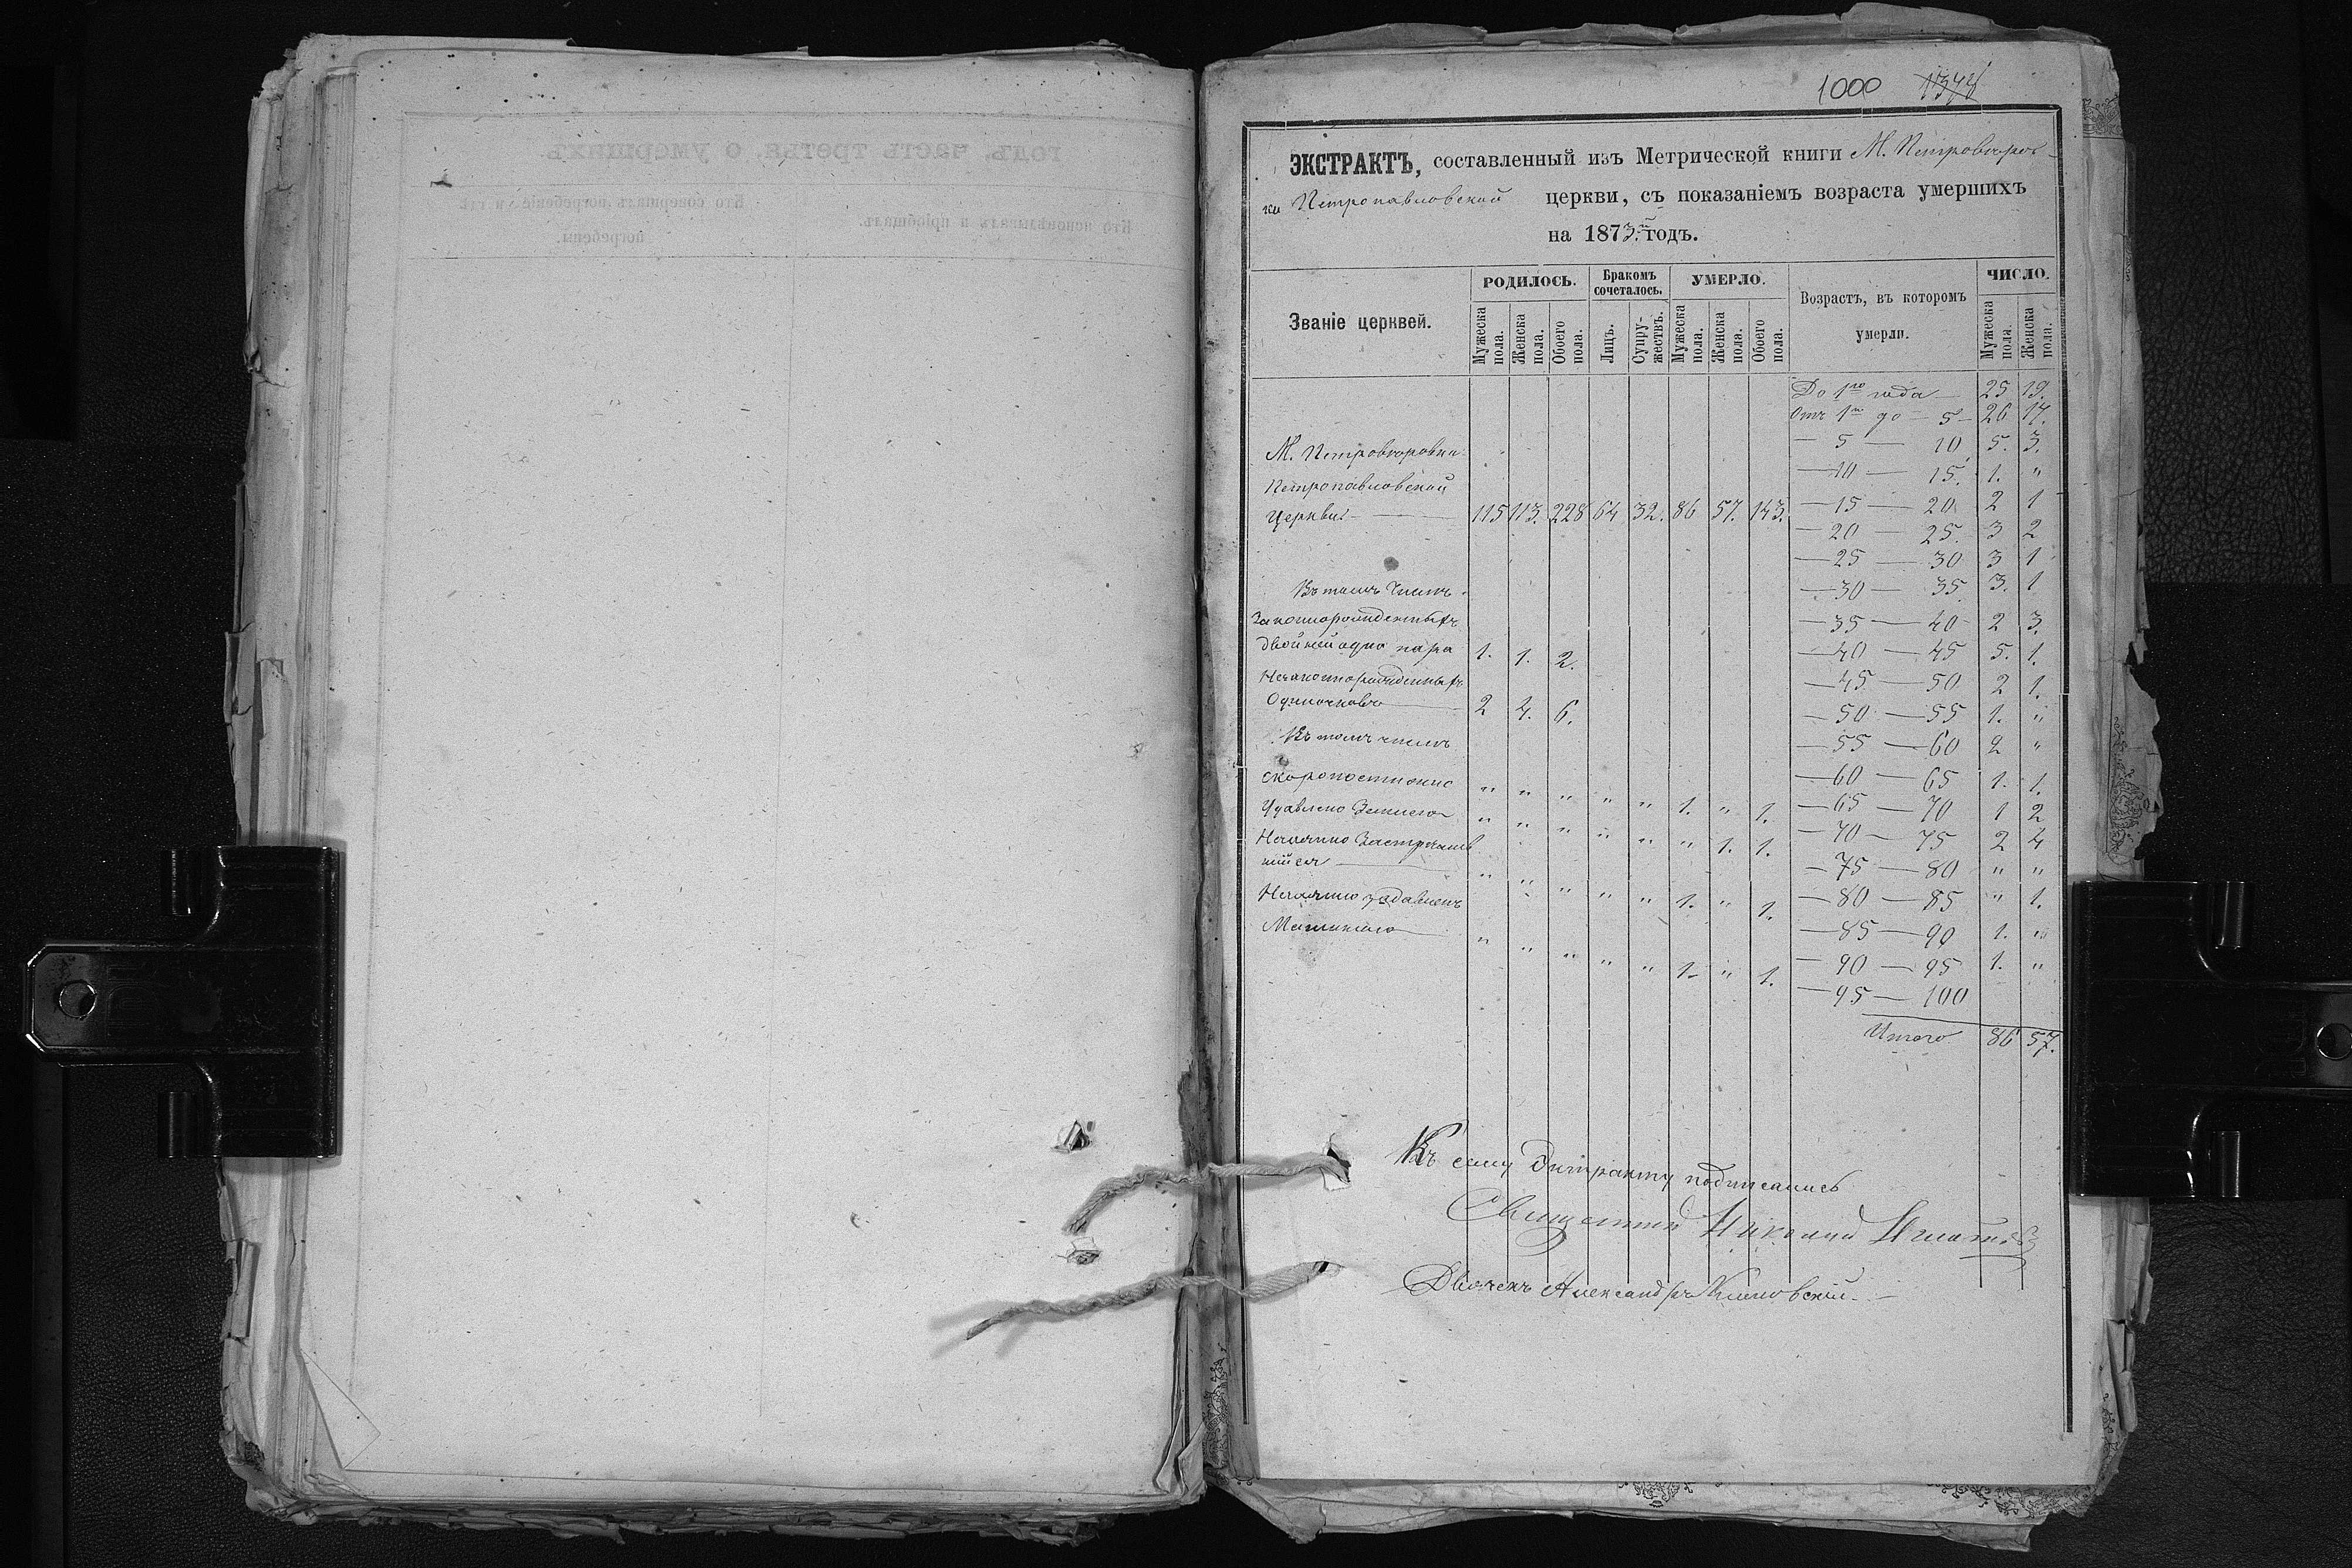 1000 1374
ЭКСТРАКТЪ, составленный изъ Метрической книги М. Петровѣров-
ки Петропавловской церкви, съ показаніемъ возраста умершихъ
на 1873.й годъ.
Званіе церквей.
РОДИЛОСЬ.
Мужеска пола.
Женска пола.
Обоего пола.
Бракомъ сочеталось.
Лицъ.
Супру-жествъ.
УМЕРЛО.
Мужеска пола.
Женска пола.
Обоего пола.
Возрастъ, въ которомъ
умерли.
ЧИСЛО.
Мужеска пола.
Женска пола.
До 1го года — 25 19.
Отъ 1го до — 5 — 26 17.
— 5 — 10. 5. 3.
— 10 — 15. 1. "
— 15 — 20. 2 1
— 20 — 25. 3 2
— 25 — 30 3 1
— 30 — 35. 3. 1
— 35 — 40 2 3.
— 40 — 45 5. 1.
— 45 — 50 2 1.
— 50 — 55 1. "
— 55 — 60 2 "
— 60 — 65 1. 1.
— 65 — 70 1 2
— 70 — 75 2 4
— 75 — 80 " "
— 80 — 85 " 1.
— 85 — 90 1. "
— 90 — 95 1. "
— 95 — 100
Итого 86 57.
М. Петровѣровки
Петропавловской
Церкви — 115 113. 228 64 32. 86 57. 143.
Въ томъ числѣ
Законнорожденныхъ
двойней одна пара 1. 1. 2.
Незаконнорожденныхъ
Одиночковъ 2 4. 6.
Въ томъ числѣ
скоропостижно " " " " " 1. " 1.
Удавлено Землею " " " " " " 1. 1.
Нечаянно Застрѣлив
шійся " " " " " 1. " 1.
Нечаянно задавленъ
" " " " " 1. " 1.
Къ сему Экстракту подписались
Священникъ Николай
Дьячекъ Александръ
годъ, часть третья, о умершихъ.
Кто исповѣдывалъ и пріобщалъ.
Кто совершалъ погребеніе и гдѣ
погребены.